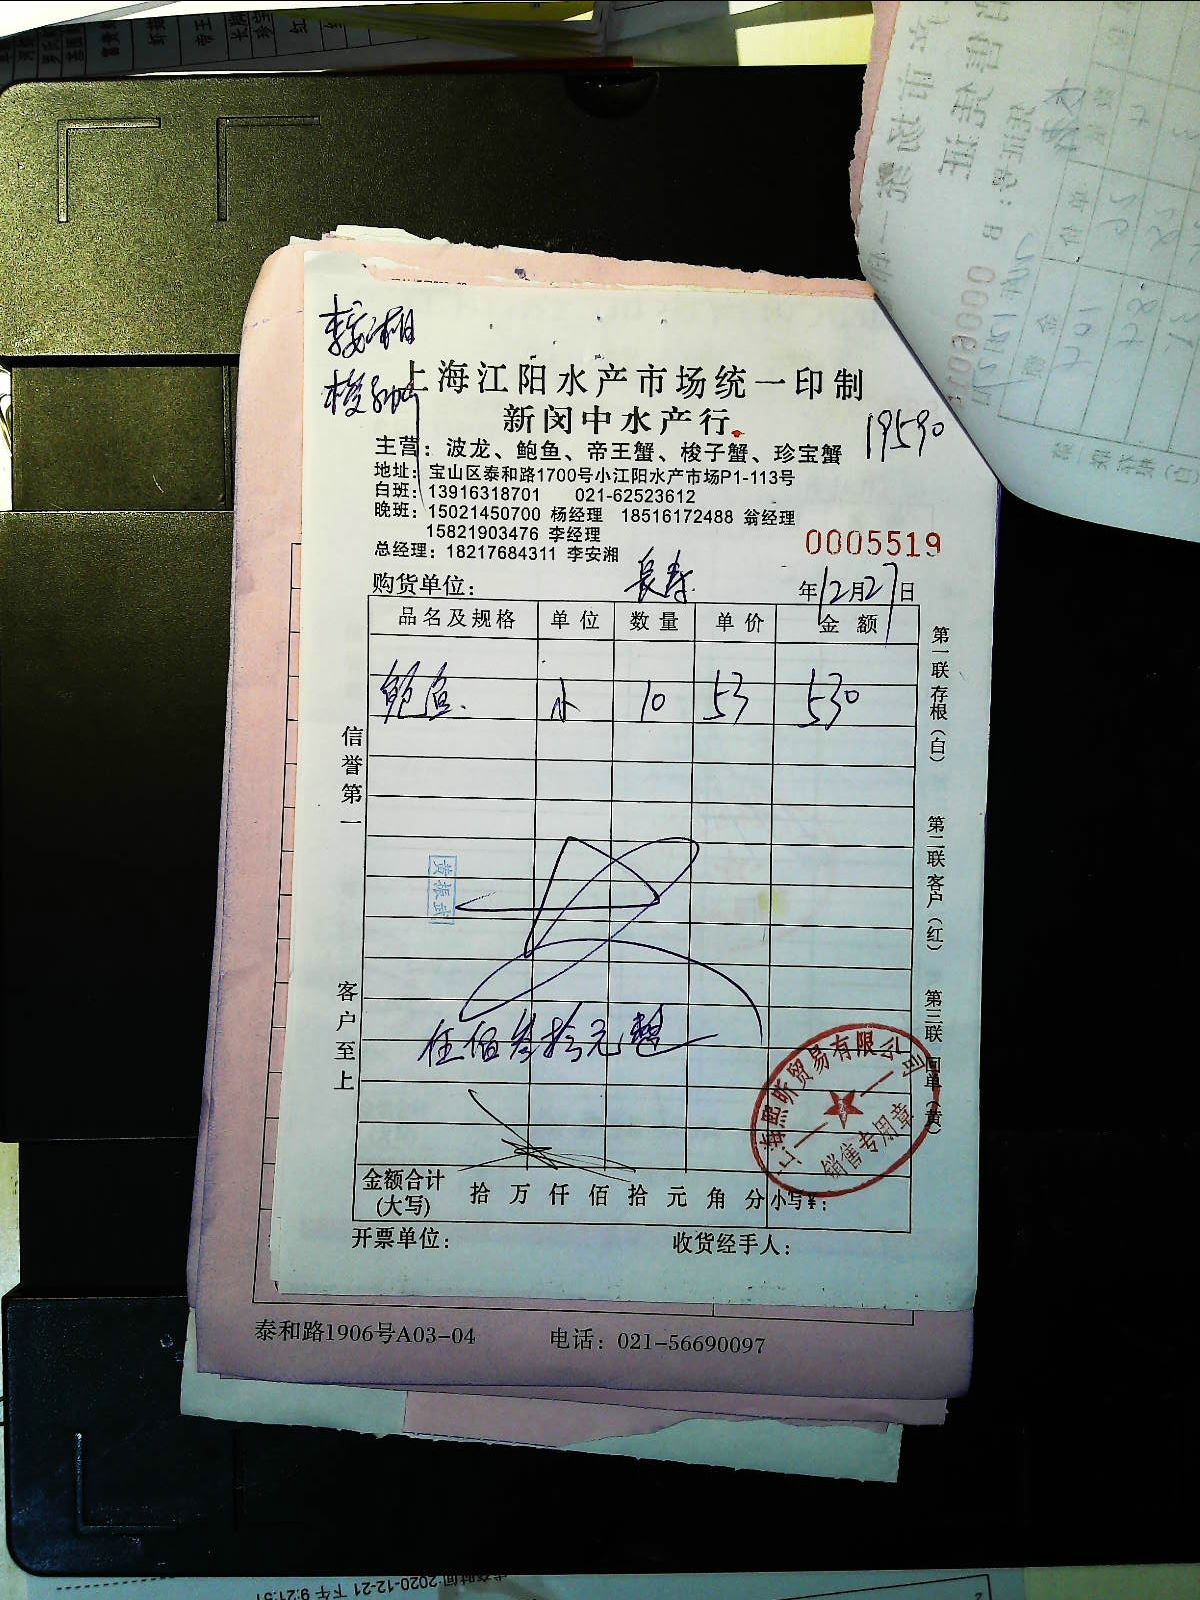 李安湘
梭子蟹
上海江阳水产市场统一印制
新闵中水产行
19590
主营：波龙、鲍鱼、帝王蟹、梭子蟹、珍宝蟹
地址：宝山区泰和路1700号小江阳水产市场P1-113号
白班：13916318701 021-62523612
晚班：15021450700 杨经理 18516172488 翁经理
15821903476 李经理
总经理：18217684311 李安湘
0005519
购货单位：长寿 年12月27日
品名及规格 单位 数量 单价 金额
鲍鱼 小 10 53 530
信誉第一
客户至上
第一联 存根（白）
第二联 客户（红）
第三联 回单（黄）
黄振武
伍佰叁拾元整
上海熙昕贸易有限公司
销售专用章
金额合计(大写) 拾 万 仟 佰 拾 元 角 分 小写¥：
开票单位： 收货经手人：
泰和路1906号A03-04 电话：021-56690097
时间:2020-12-21 下午 9:21:51